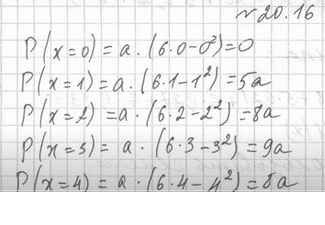 № 20.16
P(x=0) = a · (6·0-0²) = 0
P(x=1) = a · (6·1-1²) = 5a
P(x=2) = a · (6·2-2²) = 8a
P(x=3) = a · (6·3-3²) = 9a
P(x=4) = a · (6·4-4²) = 8a